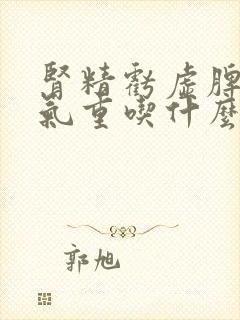 腎精虧虛脾
氣重喫什麼
郭旭